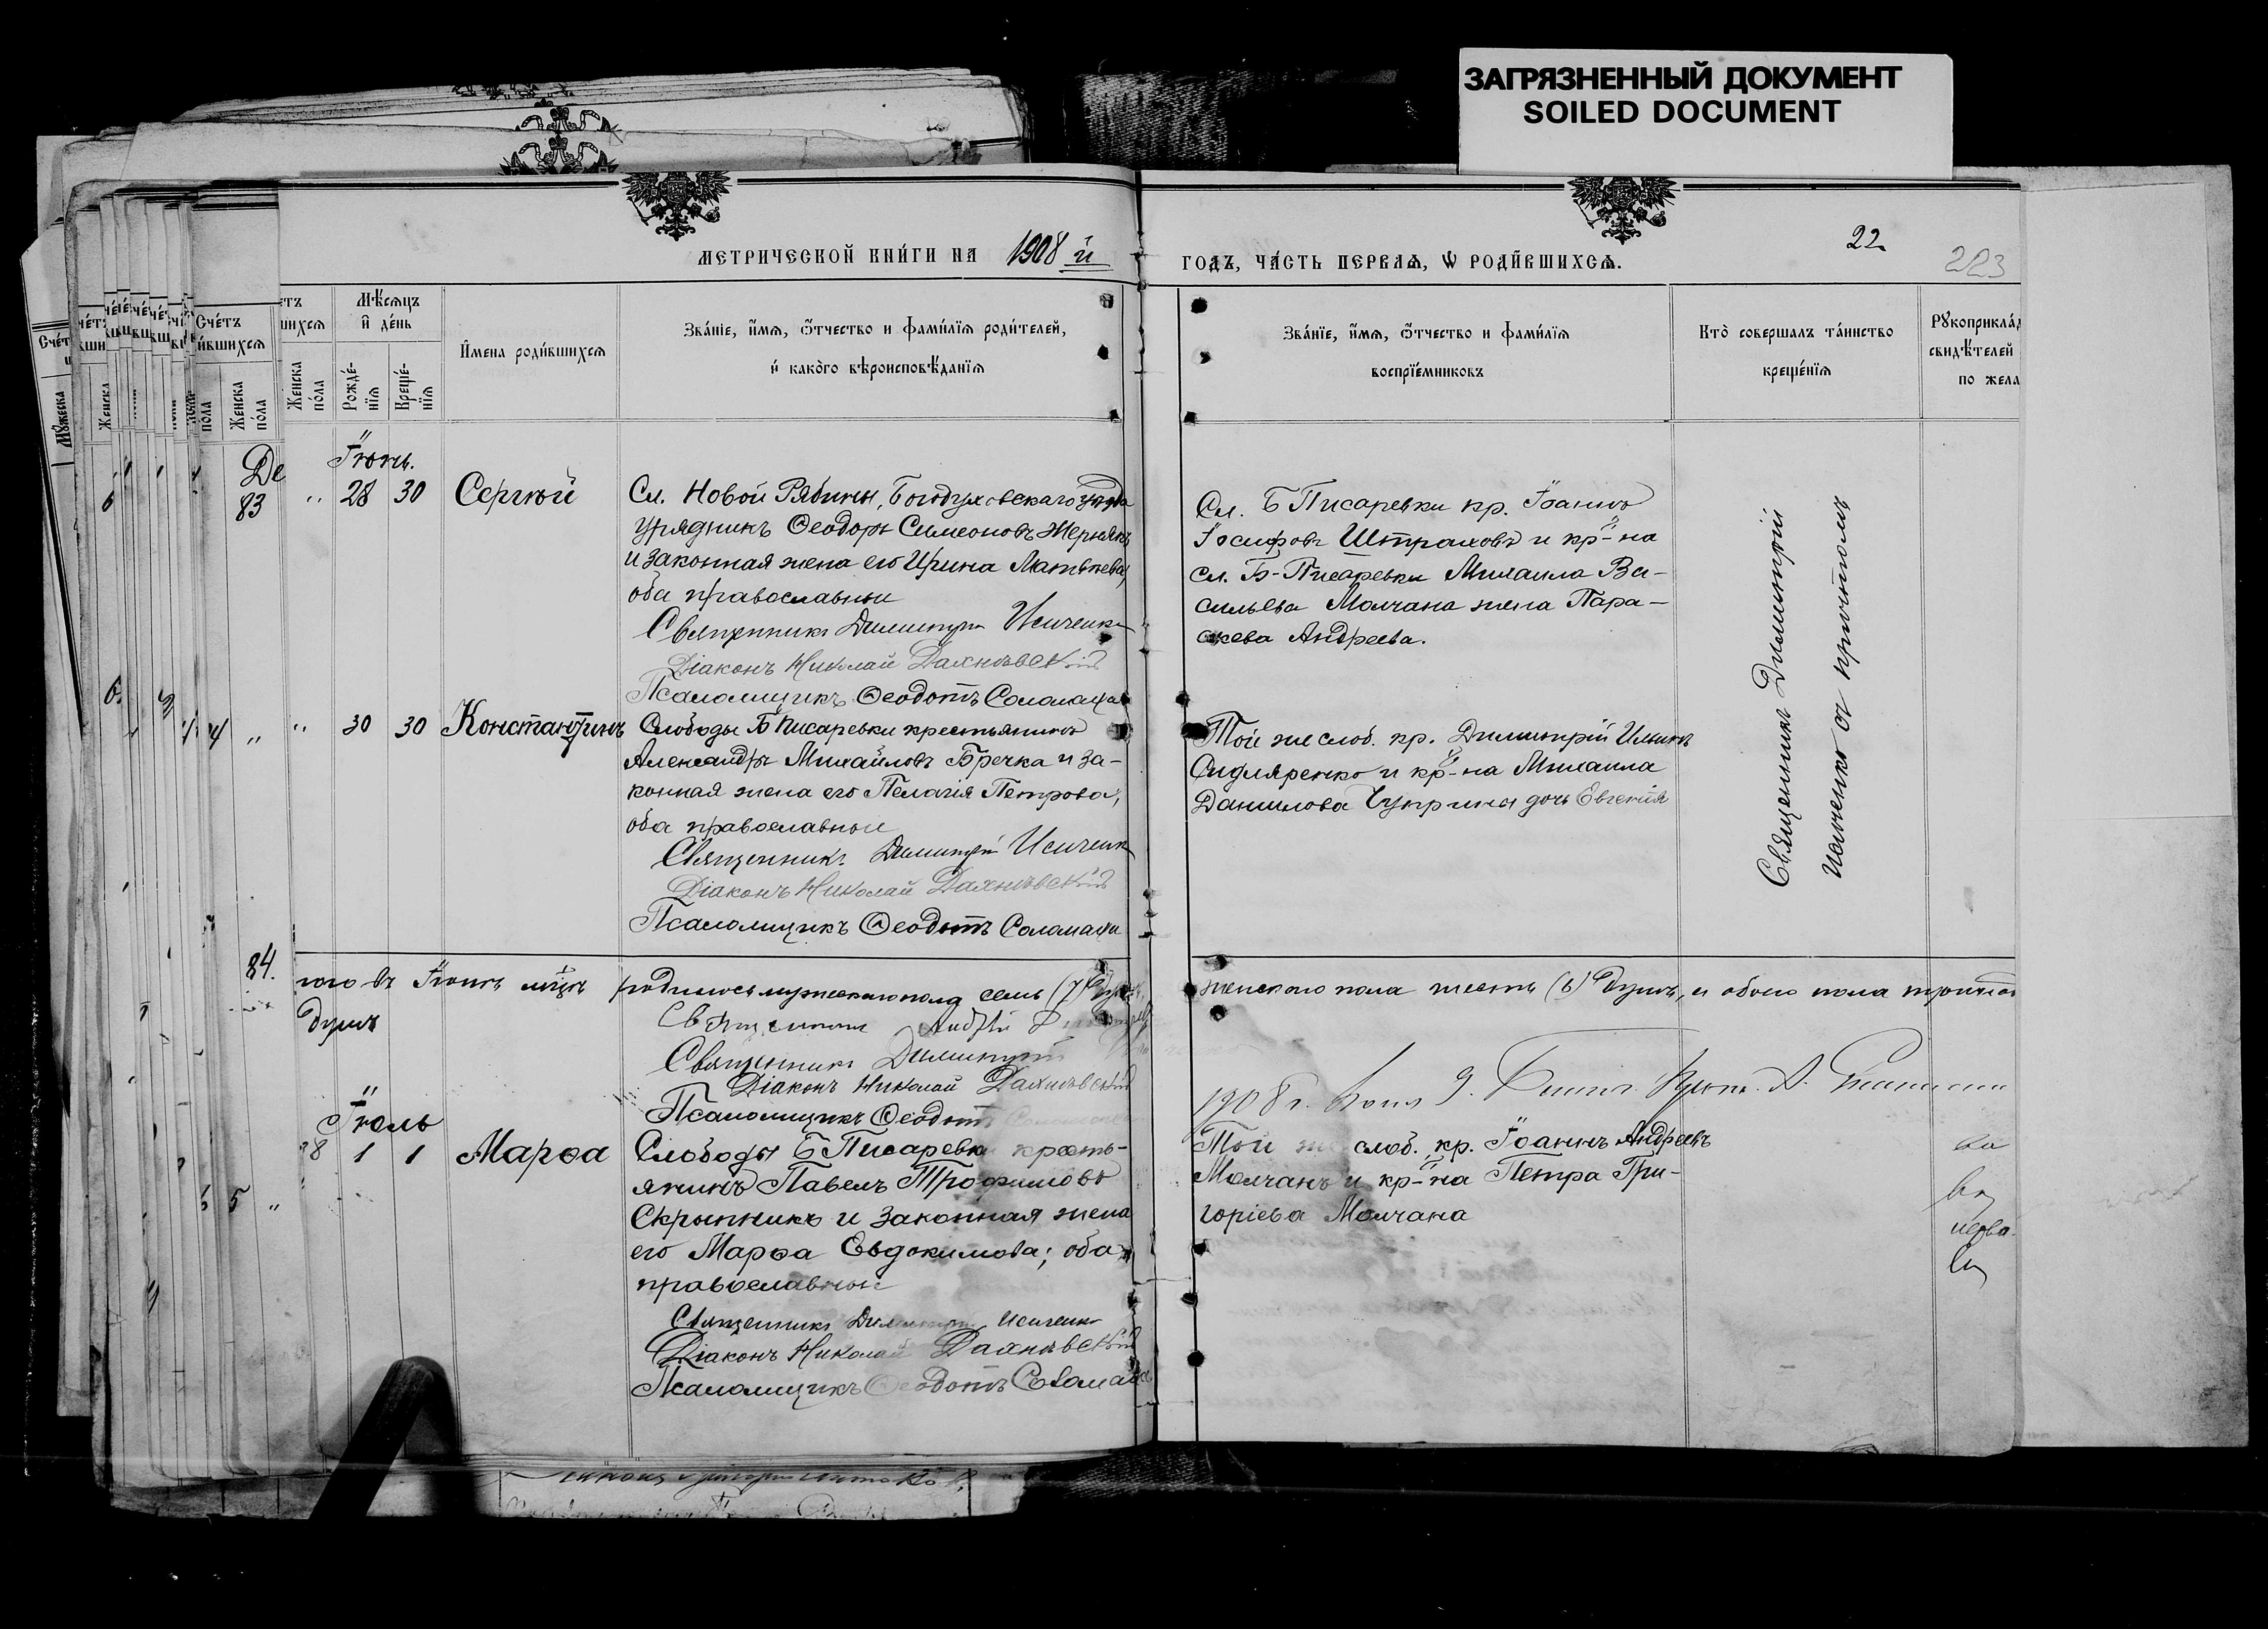 ЗАГРЯЗНЕННЫЙ ДОКУМЕНТ
SOILED DOCUMENT
МЕТРИЧЕСКОЙ КНИ́ГИ НА 1908 й
ГОДЪ, ЧА́СТЬ ПЕРВАѦ, Ѡ РОДИ́ВШИХСѦ.
22
223
Счéтъ
и́вшихсѧ
Женска
по́ла
Мѣ́сяцъ
и҆ де́нь
Рожде́-
нїѧ
Креще́-
нїѧ
И҆мена роди́вшихсѧ
Зва́нїе, и҆́мѧ, ѻ҆́тчество и фами́лїѧ роди́телей,
и҆ како́го вѣроисповѣ́данїѧ
Зва́нїе, и҆́мѧ, ѻ҆́тчество и фами́лїѧ
воспрїе́мниковъ
Кто̀ совершалъ та́инство
креще́нїѧ
Рꙋкоприкла́д
свидѣ́телей
по жела
Іюнь.
83 " 28 30 Сергѣй
Сл. Новой Рябины, Богодуховскаго уѣзда
урядникъ Ѳеодоръ Симеоновъ
и законная жена его Ирина Матвѣева,
оба православные
Священникъ Димитрій Исиченко
Діаконъ Николай Дахнѣвскій
Псаломщикъ Ѳеодотъ Соломаха
Сл. Б Писаревки кр. Іоаннъ
Іосифовъ Штраховъ и кр-на
сл. Б-Писаревки Михаила Ва-
сильева Молчана жена Пара-
скева Андреева.
Священникъ Димитрій
Исиченко съ причтомъ
" 30 30 Константинъ
Слободы Б Писаревки крестьянинъ
Александръ Михайловъ Бречка и за-
конная жена его Пелагія Петрова,
оба православные
Священникъ Димитрій Исиченко
Діаконъ Николай Дахнѣвскій
Псаломщикъ Ѳеодотъ Соломаха
Той же слоб. кр. Димитрій Ильинъ
Скляренко и кр-на Михаила
Данилова Чуприны дочь Евгенія
84.
того въ Іюнѣ мѣцѣ родилось мужескаго пола семь (7)
женскаго пола шесть (6) душъ, и обоего пола
душъ
Священникъ Андрей
Священникъ Димитрій
Діаконъ Николай Дахнѣвскій
Псаломщикъ Ѳеодотъ
1908 г.
Іюль
28 1 1 Марѳа
Слободы Б Писаревки кресть-
янинъ Павелъ Трофимовъ
Скрыпникъ и законная жена
его Марѳа Евдокимова; оба
православные
Священникъ Димитрій Исиченко
Діаконъ Николай Дахнѣвскій
Псаломщикъ Ѳеодотъ Соломаха
Той же слоб. кр. Іоаннъ Андреевъ
Молчанъ и кр-на Петра Гри-
горіева Молчана